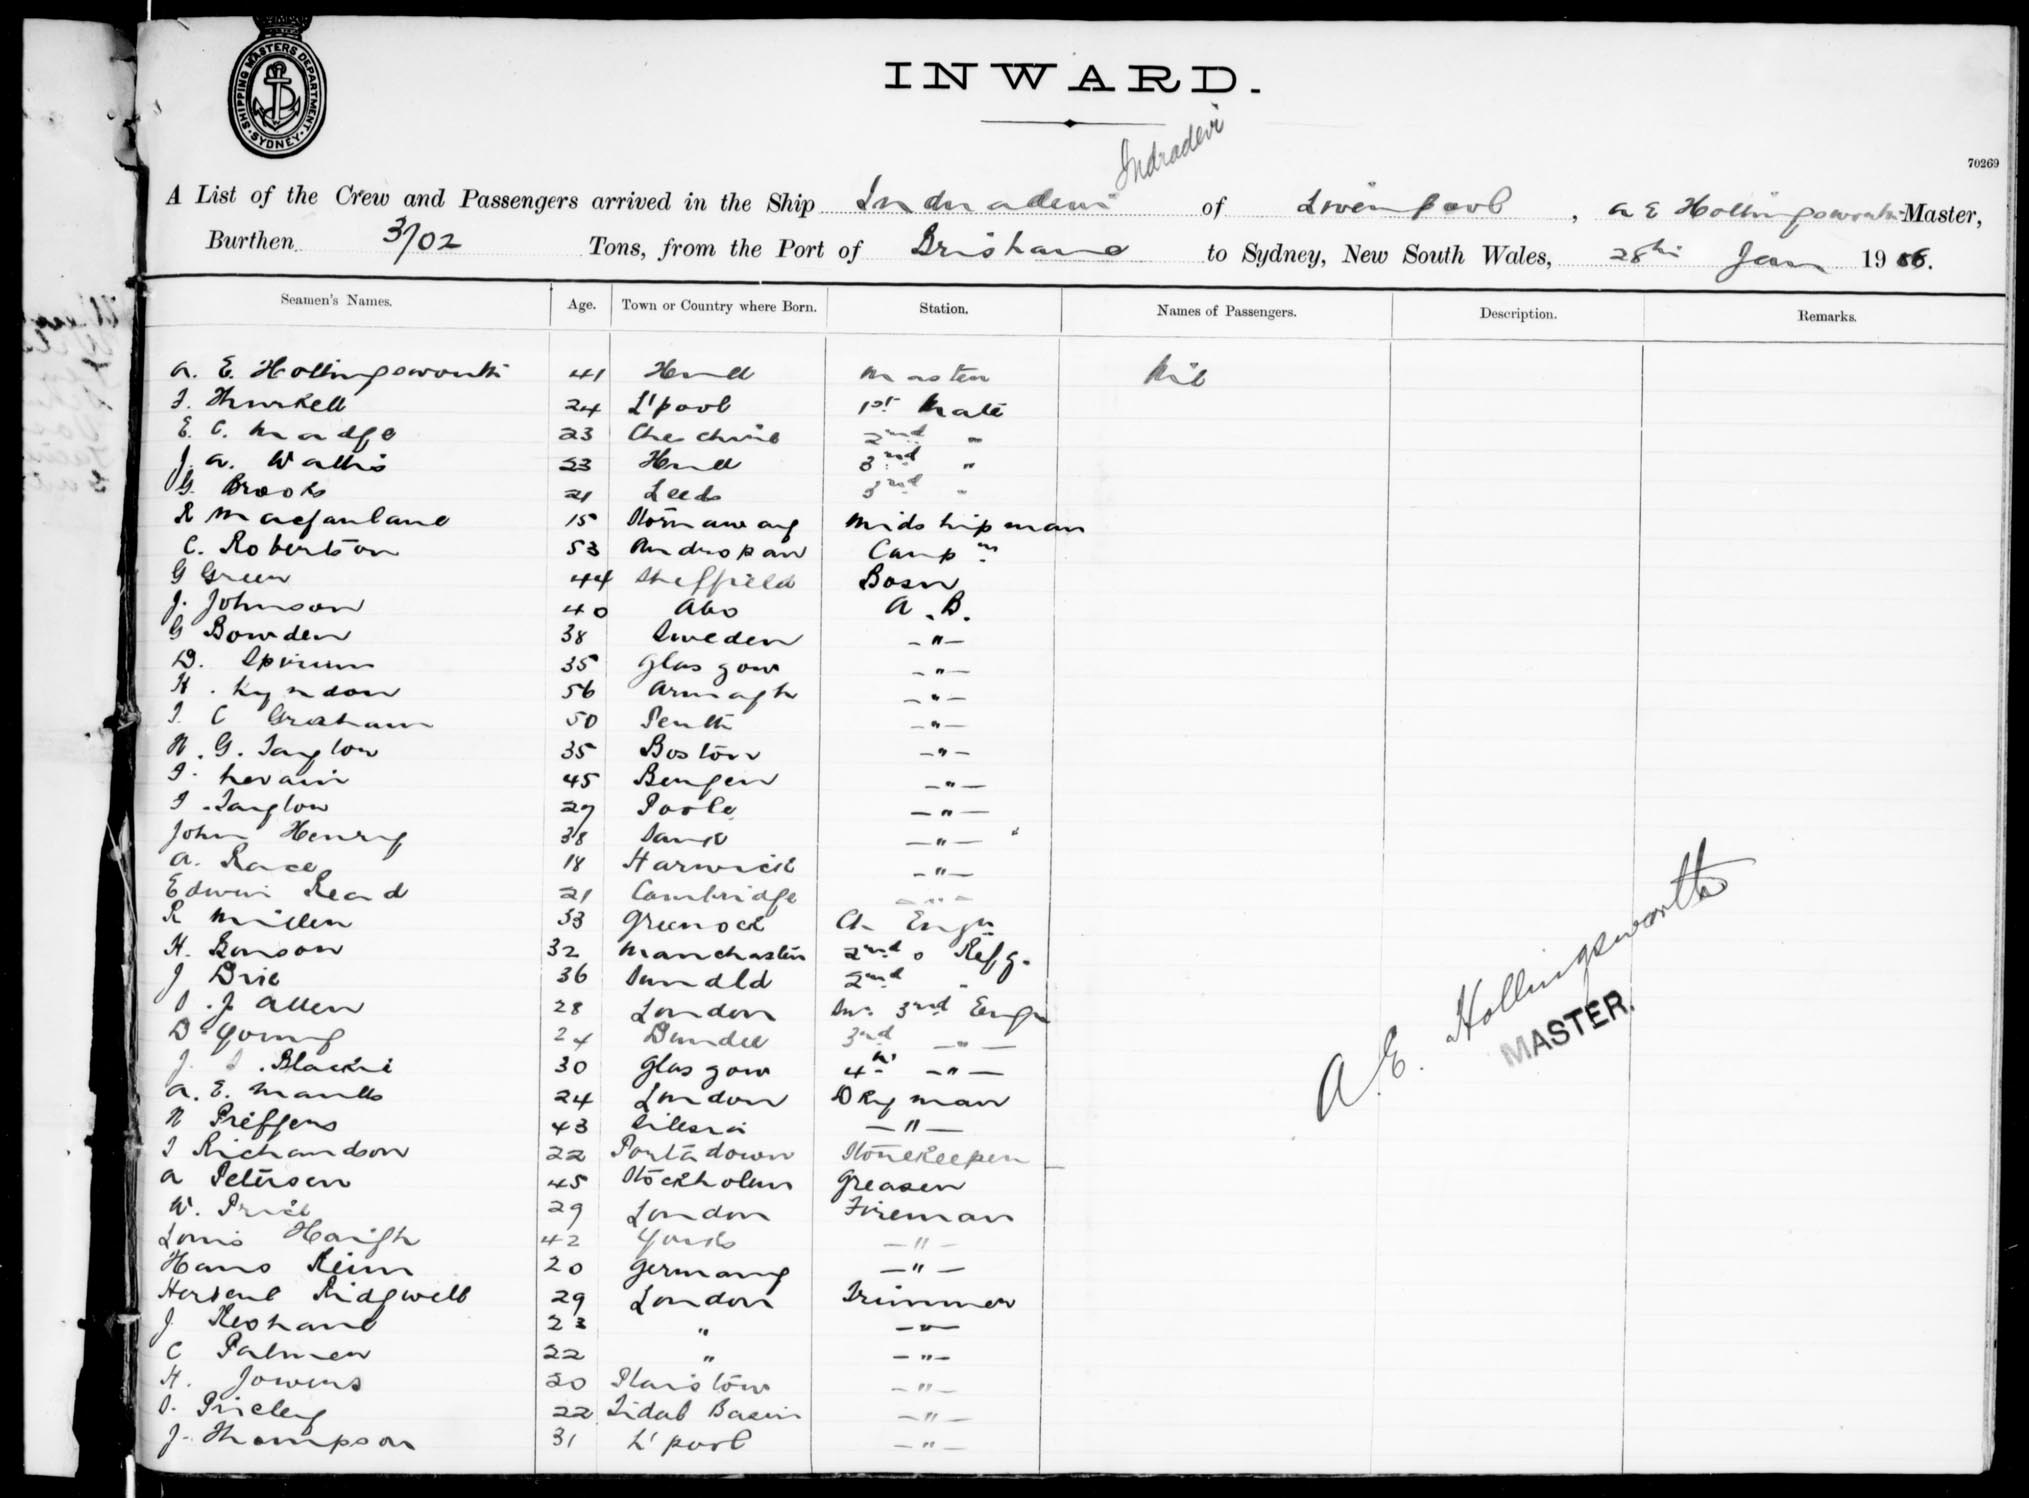 SHIPPING MASTERS DEPARTMENT. SYDNEY
INWARD.
Indradevi
70269
A List of the Crew and Passengers arrived in the Ship Indradevi of Liverpool, A E Hollingsworth Master,
Burthen 3702 Tons, from the Port of Brisbane to Sydney, New South Wales, 28th Jan 1906.
Seamen's Names. Age. Town or Country where Born. Station. Names of Passengers. Description. Remarks.
A. E. Hollingsworth 41 Hull Master Nil
J. Thurkell 24 L'pool 1st Mate
E. C. Madge 23 Cheshire 2nd "
J. A. Wallis 23 Hull 3rd "
G. Brooks 21 Leeds 3rd "
R Macfarlane 15 Stornaway Midshipman
C. Robertson 53 Carp
G Green 44 Sheffield Bosn
J. Johnson 40 Abo A.B.
G Bowden 38 Sweden -"-
D. 35 Glasgow -"-
H. Lyndon 56 Armagh -"-
J. C Graham 50 Perth -"-
N. G. Tanglow 35 Boston -"-
45 Bergen -"-
J. Tanglow 27 Poole -"-
John Henry 38 -"-
A. Race 18 Harwich -"-
Edwin Read 21 Cambridge -"-
R Miller 33 Greenock Ch Engr
H. Bonson 32 Manchester 2nd o Refg.
J 36 Sundld 2nd "
J. Allen 28 London Snr 3rd Engr
D. Young 24 Dundee 3rd -"-
J. Blackie 30 Glasgow 4th -"-
A. E. Mantls 24 London Dkyman
N Prieffens 43 Silesia -"-
J Richardson 22 Portadown Storekeeper
A Petersen 45 Stockholm Greaser
W. Price 29 London Fireman
Louis Haigh 42 Yorks -"-
Hans Reim 20 Germany -"-
Herbert Ridgwell 29 London Trimmer
J. Keohane 23 " -"-
C Palmer 22 " -"-
H. Jowers 20 Plaistow -"-
22 Tidal Basin -"-
J. Thompson 31 L'pool -"-
A. E. Hollingsworth
MASTER.